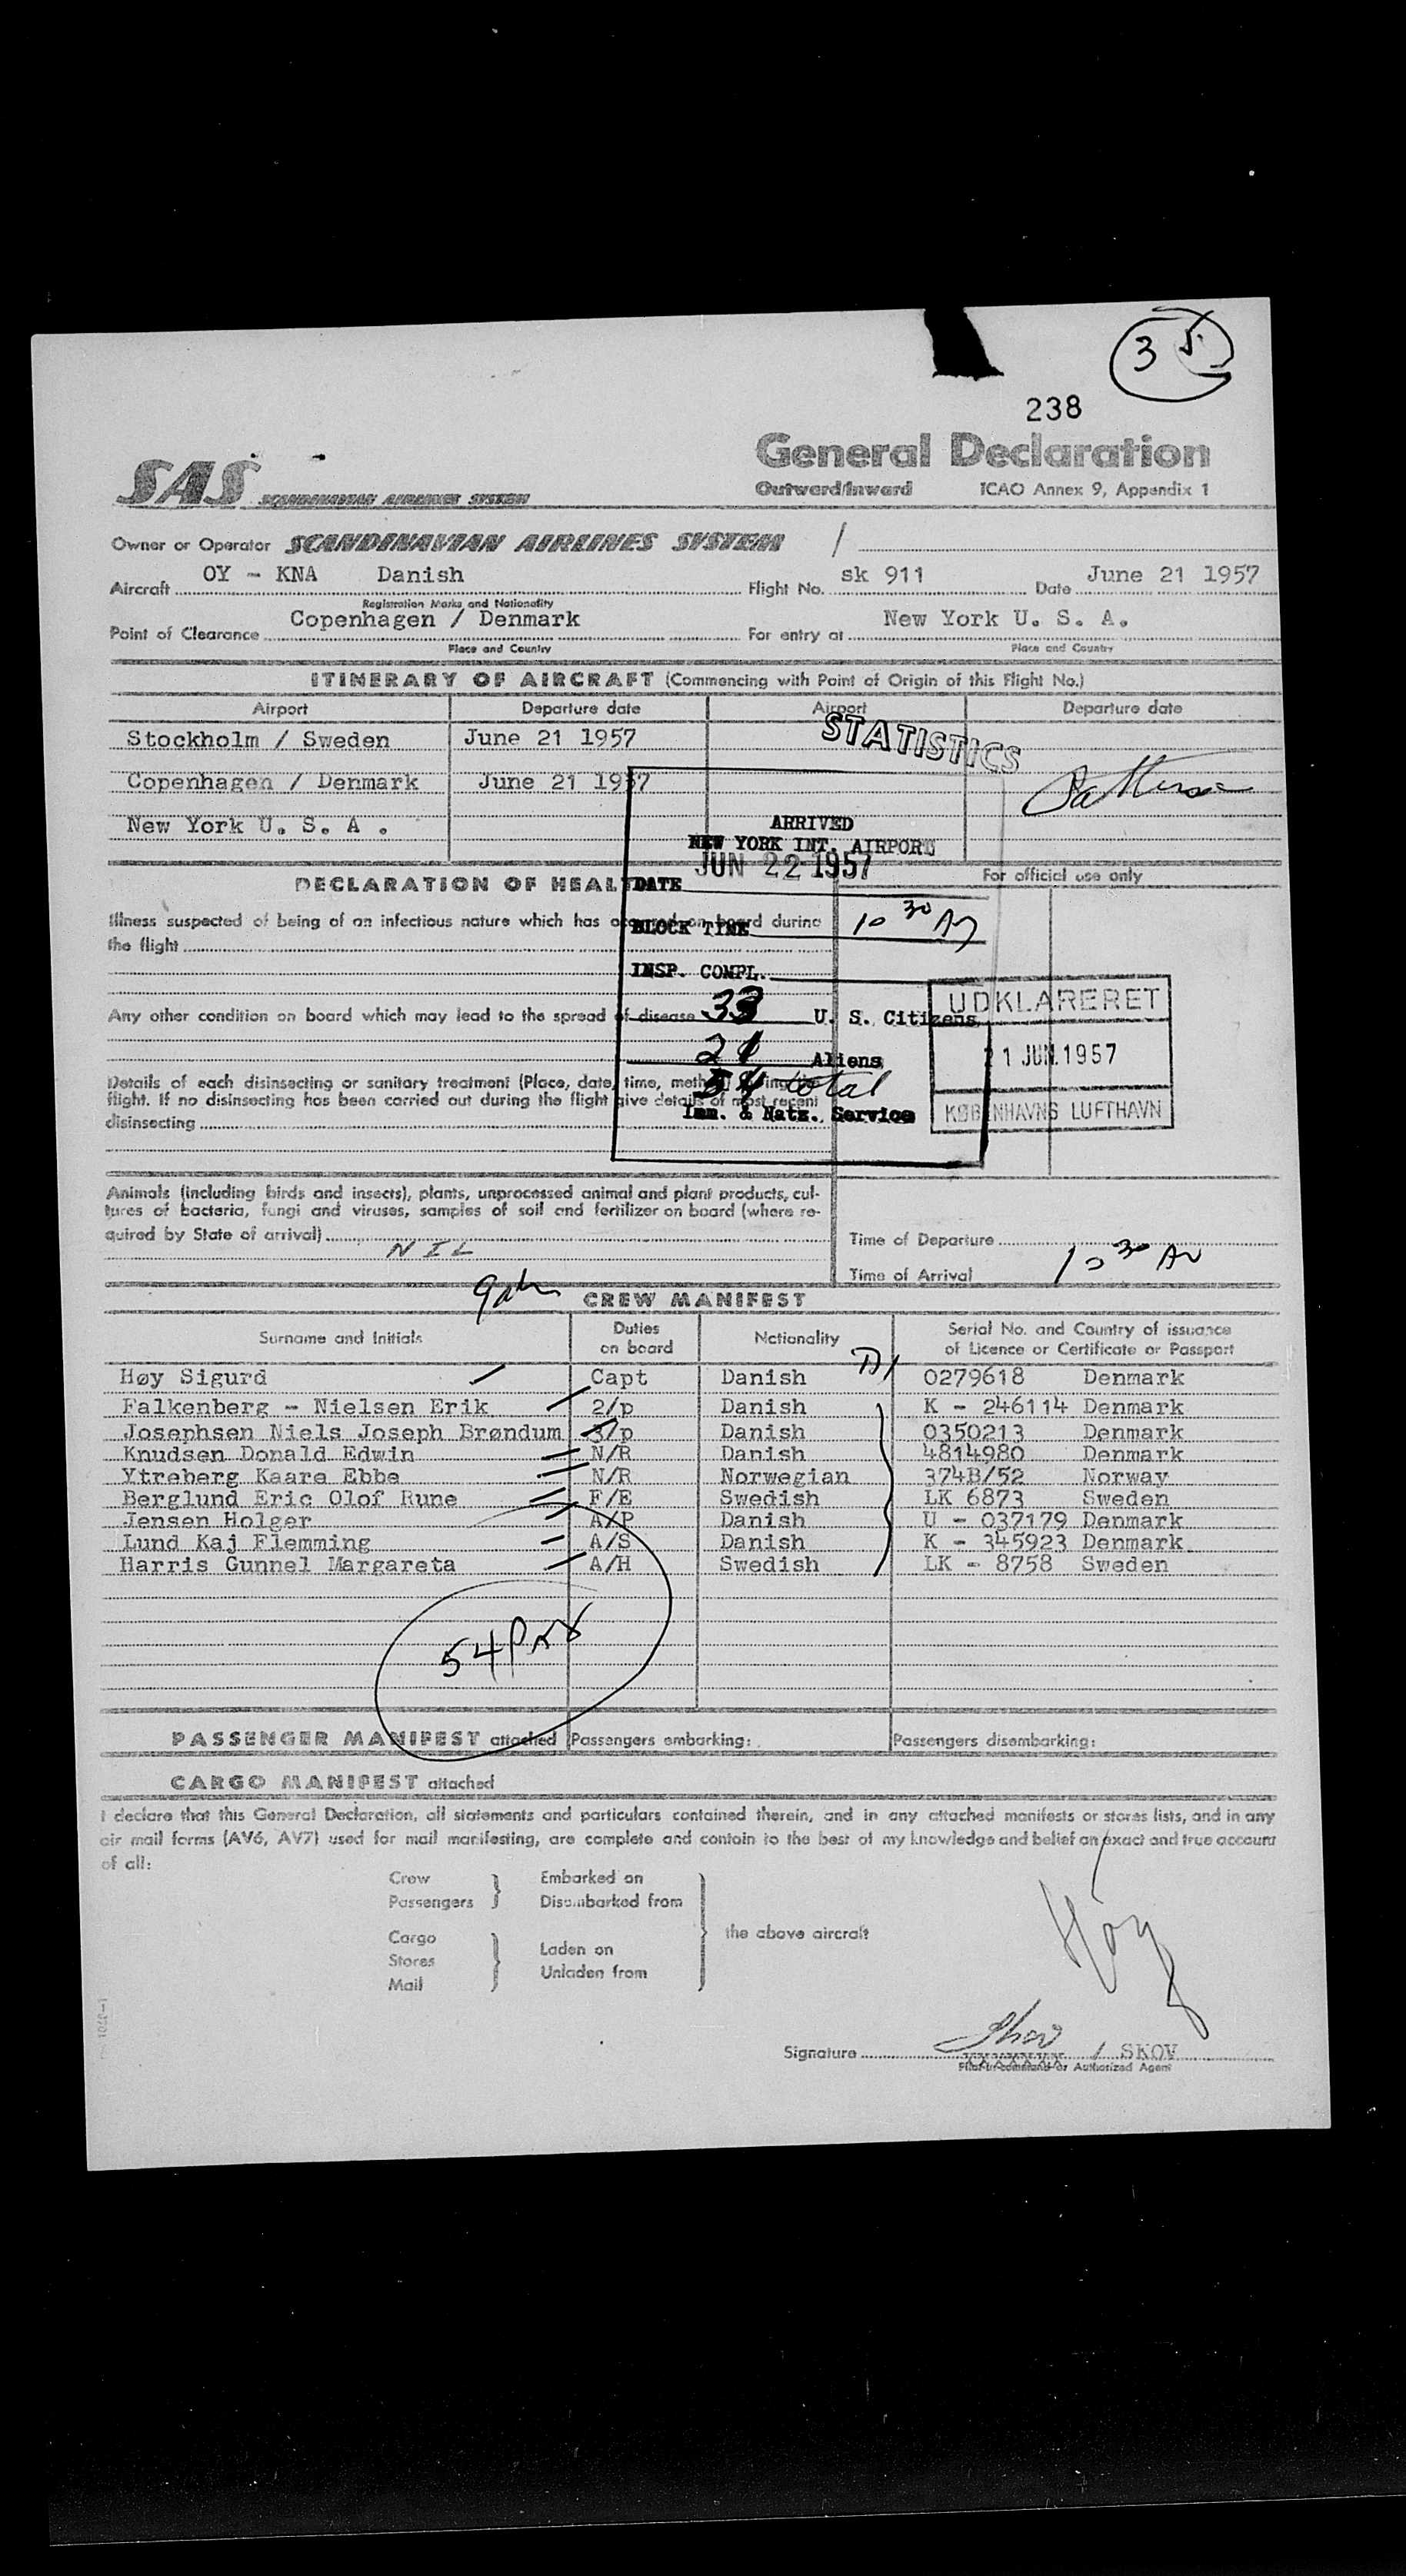 3
238
General Declaration
Outward/Inward ICAO Annex 9, Appendix 1
SAS SCANDINAVIAN AIRLINES SYSTEM
Owner or Operator SCANDINAVIAN AIRLINES SYSTEM /
Aircraft OY - KNA Danish Flight No. sk 911 Date June 21 1957
Registration Marks and Nationality
Point of Clearance Copenhagen / Denmark For entry at New York U. S. A.
Place and Country Place and Country
ITINERARY OF AIRCRAFT (Commencing with Point of Origin of this Flight No.)
Airport Departure date Airport Departure date
Stockholm / Sweden June 21 1957
STATISTICS
Copenhagen / Denmark June 21 1957
New York U. S. A .
ARRIVED
NEW YORK INT. AIRPORT
JUN 22 1957
DATE
DECLARATION OF HEALTH For official use only
Illness suspected of being of an infectious nature which has occurred on board during
the flight
BLOCK TIME 10 30 AM
INSP. COMPL.
Any other condition on board which may lead to the spread of disease
33 U. S. Citizens
21 Aliens
54 total
Imm. & Natz. Service
UDKLARERET
21 JUN. 1957
KØBENHAVNS LUFTHAVN
Details of each disinsecting or sanitary treatment (Place, date, time, method) during the
flight. If no disinsecting has been carried out during the flight give details of most recent
disinsecting
Animals (including birds and insects), plants, unprocessed animal and plant products, cul-
tures of bacteria, fungi and viruses, samples of soil and fertilizer on board (where re-
quired by State of arrival) NIL
Time of Departure
Time of Arrival 10 30 AM
CREW MANIFEST
Surname and Initials Duties on board Nationality Serial No. and Country of issuance of Licence or Certificate or Passport
Høy Sigurd Capt Danish 0279618 Denmark
Falkenberg - Nielsen Erik 2/p Danish K - 246114 Denmark
Josephsen Niels Joseph Brøndum 3/p Danish 0350213 Denmark
Knudsen Donald Edwin N/R Danish 4814980 Denmark
Ytreberg Kaare Ebbe N/R Norwegian 374B/52 Norway
Berglund Eric Olof Rune F/E Swedish LK 6873 Sweden
Jensen Holger A/P Danish U - 037179 Denmark
Lund Kaj Flemming A/S Danish K - 345923 Denmark
Harris Gunnel Margareta A/H Swedish LK - 8758 Sweden
54 Pax
PASSENGER MANIFEST attached Passengers embarking: Passengers disembarking:
CARGO MANIFEST attached
I declare that this General Declaration, all statements and particulars contained therein, and in any attached manifests or stores lists, and in any
air mail forms (AV6, AV7) used for mail manifesting, are complete and contain to the best of my knowledge and belief an exact and true account
of all:
Crew Embarked on
Passengers Disembarked from
the above aircraft
Cargo Laden on
Stores Unladen from
Mail
Høy
Signature Skov / SKOV
Pilot-in-command or Authorized Agent